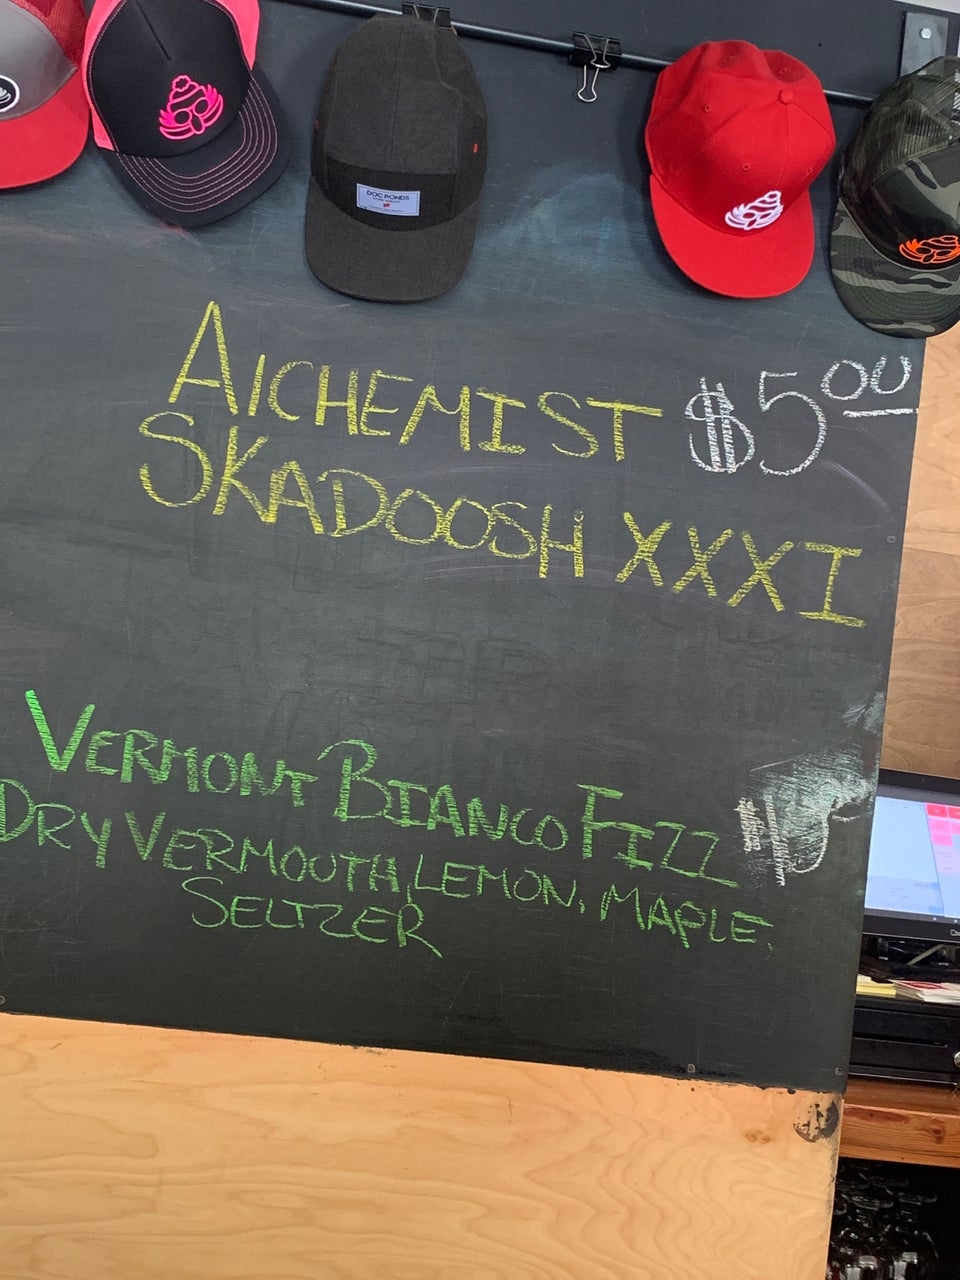 DOC PONDS
AlCHEMIST $5.00
SKADOOSH XXXI
VERMONT BIANCO FIZZ
DRY VERMOUTH, LEMON, MAPLE,
SELTZER